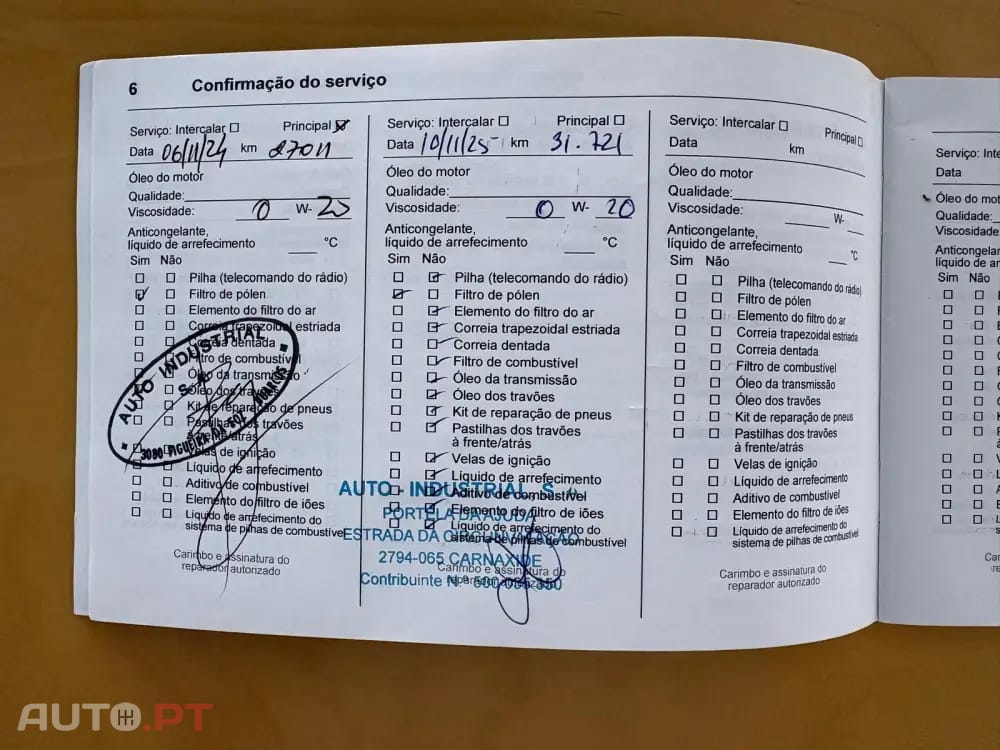 6 Confirmação do serviço
Serviço: Intercalar Principal
Data 06/11/24 km 27011
Óleo do motor
Qualidade:
Viscosidade: 0 W- 20
Anticongelante,
líquido de arrefecimento °C
Sim Não
Pilha (telecomando do rádio)
Filtro de pólen
Elemento do filtro do ar
Correia trapezoidal estriada
Correia dentada
Filtro de combustível
Óleo da transmissão
Óleo dos travões
Kit de reparação de pneus
Pastilhas dos travões
à frente/atrás
Velas de ignição
Líquido de arrefecimento
Aditivo de combustível
Elemento do filtro de iões
Líquido de arrefecimento do
sistema de pilhas de combustível
Carimbo e assinatura do
reparador autorizado
AUTO INDUSTRIAL
S.A.
3080 FIGUEIRA DA FOZ
Serviço: Intercalar Principal
Data 10/11/25 km 31.721
Óleo do motor
Qualidade:
Viscosidade: 0 W- 20
Anticongelante,
líquido de arrefecimento °C
Sim Não
Pilha (telecomando do rádio)
Filtro de pólen
Elemento do filtro do ar
Correia trapezoidal estriada
Correia dentada
Filtro de combustível
Óleo da transmissão
Óleo dos travões
Kit de reparação de pneus
Pastilhas dos travões
à frente/atrás
Velas de ignição
Líquido de arrefecimento
Aditivo de combustível
Elemento do filtro de iões
Líquido de arrefecimento do
sistema de pilhas de combustível
Carimbo e assinatura do
reparador autorizado
AUTO - INDUSTRIAL, S. A.
PORTELA DA AJUDA
ESTRADA DA CIRCUNVALAÇÃO
2794-065 CARNAXIDE
Contribuinte N.º
Serviço: Intercalar Principal
Data km
Óleo do motor
Qualidade:
Viscosidade: W-
Anticongelante,
líquido de arrefecimento °C
Sim Não
Pilha (telecomando do rádio)
Filtro de pólen
Elemento do filtro do ar
Correia trapezoidal estriada
Correia dentada
Filtro de combustível
Óleo da transmissão
Óleo dos travões
Kit de reparação de pneus
Pastilhas dos travões
à frente/atrás
Velas de ignição
Líquido de arrefecimento
Aditivo de combustível
Elemento do filtro de iões
Líquido de arrefecimento do
sistema de pilhas de combustível
Carimbo e assinatura do
reparador autorizado
Serviço: Inte
Data
Óleo do mot
Qualidade:
Viscosidade
Anticongelan
líquido de ar
Sim Não
AUTO.PT